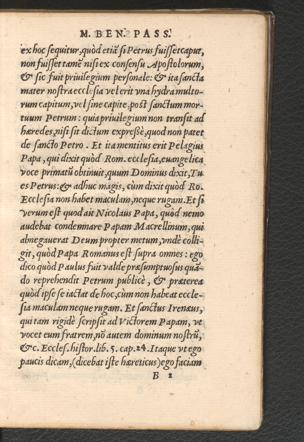 M. BEN. PASS.
ex hoc sequitur, quòd etiã si Petrus fuisset caput,
non fuisset tamẽ nisi ex consensu Apostolorum,
& sic fuit priuilegium personale: & ita sancta
mater nostra ecclesia vel erit vna hydra multo-
rum capitum, vel sine capite, post sanctum mor-
tuum Petrum: quia priuilegium non transit ad
hæredes, nisi sit dictum expreßè, quod non patet
de sancto Petro. Et ita mentitus erit Pelagius
Papa, qui dixit quòd Rom. ecclesia, euangelica
voce primatũ obtinuit, quum Dominus dixit, Tu
es Petrus: & adhuc magis, cùm dixit quòd Ro.
Ecclesia non habet maculam, neque rugam. Et si
verum est quod ait Nicolaus Papa, quòd nemo
audebat condemnare Papam Marcellinum, qui
abnegauerat Deum propter metum, vnde colli-
git, quòd Papa Romanus est supra omnes: ego
dico quòd Paulus fuit valde præsumptuosus quã-
do reprehendit Petrum publicè, & præterea
quòd ipse se iactat de hoc, cùm non habeat eccle-
sia maculam neque rugam. Et sanctus Irenæus,
qui tam rigidè scripsit ad Victorem Papam, vt
vocet eum fratrem, nõ autem dominum nostrũ,
&c. Eccles. histor. lib. 5. cap. 24. Itaque vt ego
paucis dicam, (dicebat iste hæreticus) ego faciam
B 2